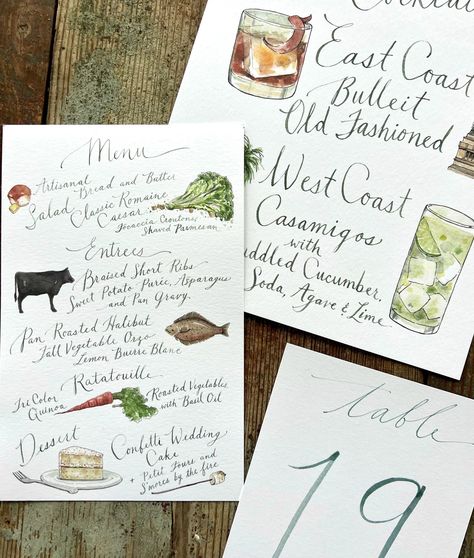 Menu
Artisanal
Bread and Butter
Salad Classic Romaine
Caesar
Focaccia Croutons,
Shaved Parmesan
Entrees
Braised Short Ribs
Sweet Potato Puree, Asparagus
and Pan Gravy.
Pan Roasted Halibut
Fall Vegetable Orzo
Lemon Buerre Blanc
Ratatouille
Tri Color
Quinoa
Roasted Vegetables
with Basil Oil
Dessert
Confetti Wedding
Cake
+ Petit Fours and
S'mores by the fire
East Coast
Bulleit
Old Fashioned
West Coast
Casamigos
with
uddled Cucumber,
Soda, Agave & Lime
table
19